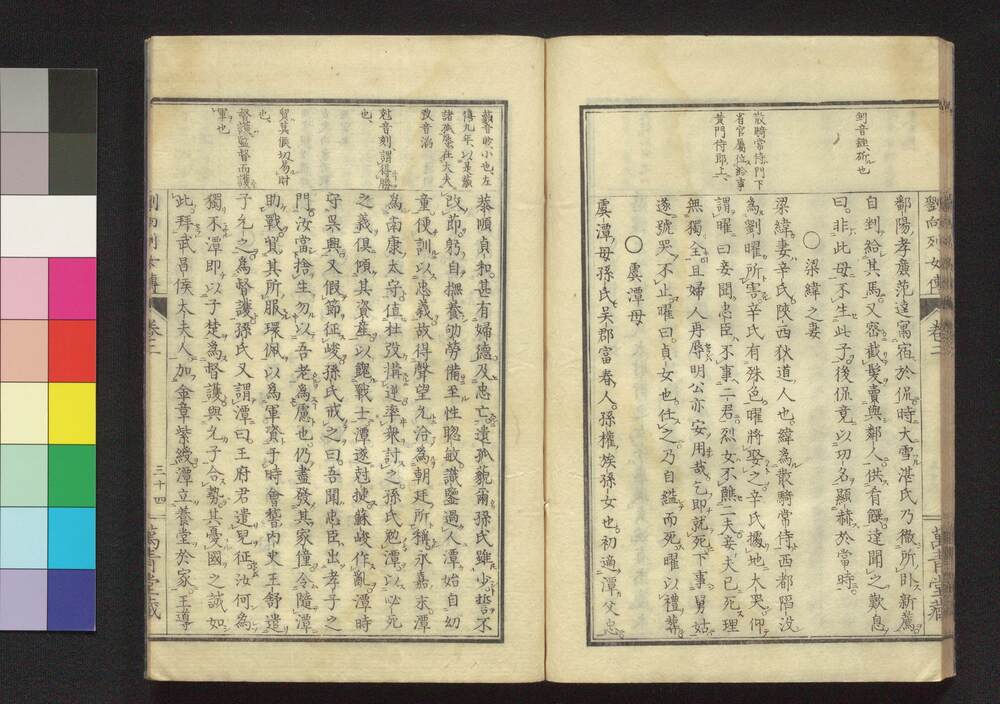 劉向列女傳 卷二
萬青堂藏
鄱陽孝廉范逵寓宿於侃時大雪湛氏乃徹所臥新薦
自剉給其馬又密截髮賣與鄰人供肴饌逵聞之歎息
曰非此母不生此子後侃竟以功名顯赫於當時
○梁緯之妻
梁緯妻辛氏隴西狄道人也緯為散騎常侍西都陷没
為劉曜所害辛氏有殊色曜將娶之辛氏據地大哭仰
謂曜曰妾聞忠臣不事二君烈女不醮二夫妾夫已死理
無獨全且婦人再辱明公亦安用哉乞即就死下事舅姑
遂號哭不止曜曰貞女也任之乃自縊而死曜以禮葬
○虞潭母
虞潭母孫氏吳郡富春人孫權族孫女也初適潭父忠
剉音蓌斫也
散騎常侍門下
省官屬位給事
黃門侍郎上
恭順貞和甚有婦德及忠亡遺孤藐爾孫氏雖少誓不
改節躬自撫養劬勞備至性聰敏識鑒過人潭始自幼
童便訓以忠義故得聲望允洽為朝廷所稱永嘉末潭
為南康太守值杜弢構逆率衆討之孫氏勉潭以必死
之義俱傾其資產以餽戰士潭遂克捷蘇峻作亂潭時
守吳興又假節征峻孫氏戒之曰吾聞忠臣出孝子之
門汝當捨生勿以吾老為慮也仍盡發其家僮令隨潭
助戰貿其所服環佩以為軍資于時會稽内史王舒遣
子允之為督護孫氏又謂潭曰王府君遣兒征汝何為
獨不潭即以子楚為督護與允子合勢其憂國之誠如
此拜武昌侯太夫人加金章紫綬潭立養堂於家王導
藐音眇小也左
傳九年以是藐
諸孤辱在大夫
弢音滔
尅音刻謂得勝
也
貿莫候切易財
也
督護監督而護
軍也
劉向列女傳 卷二
三十四
萬青堂藏